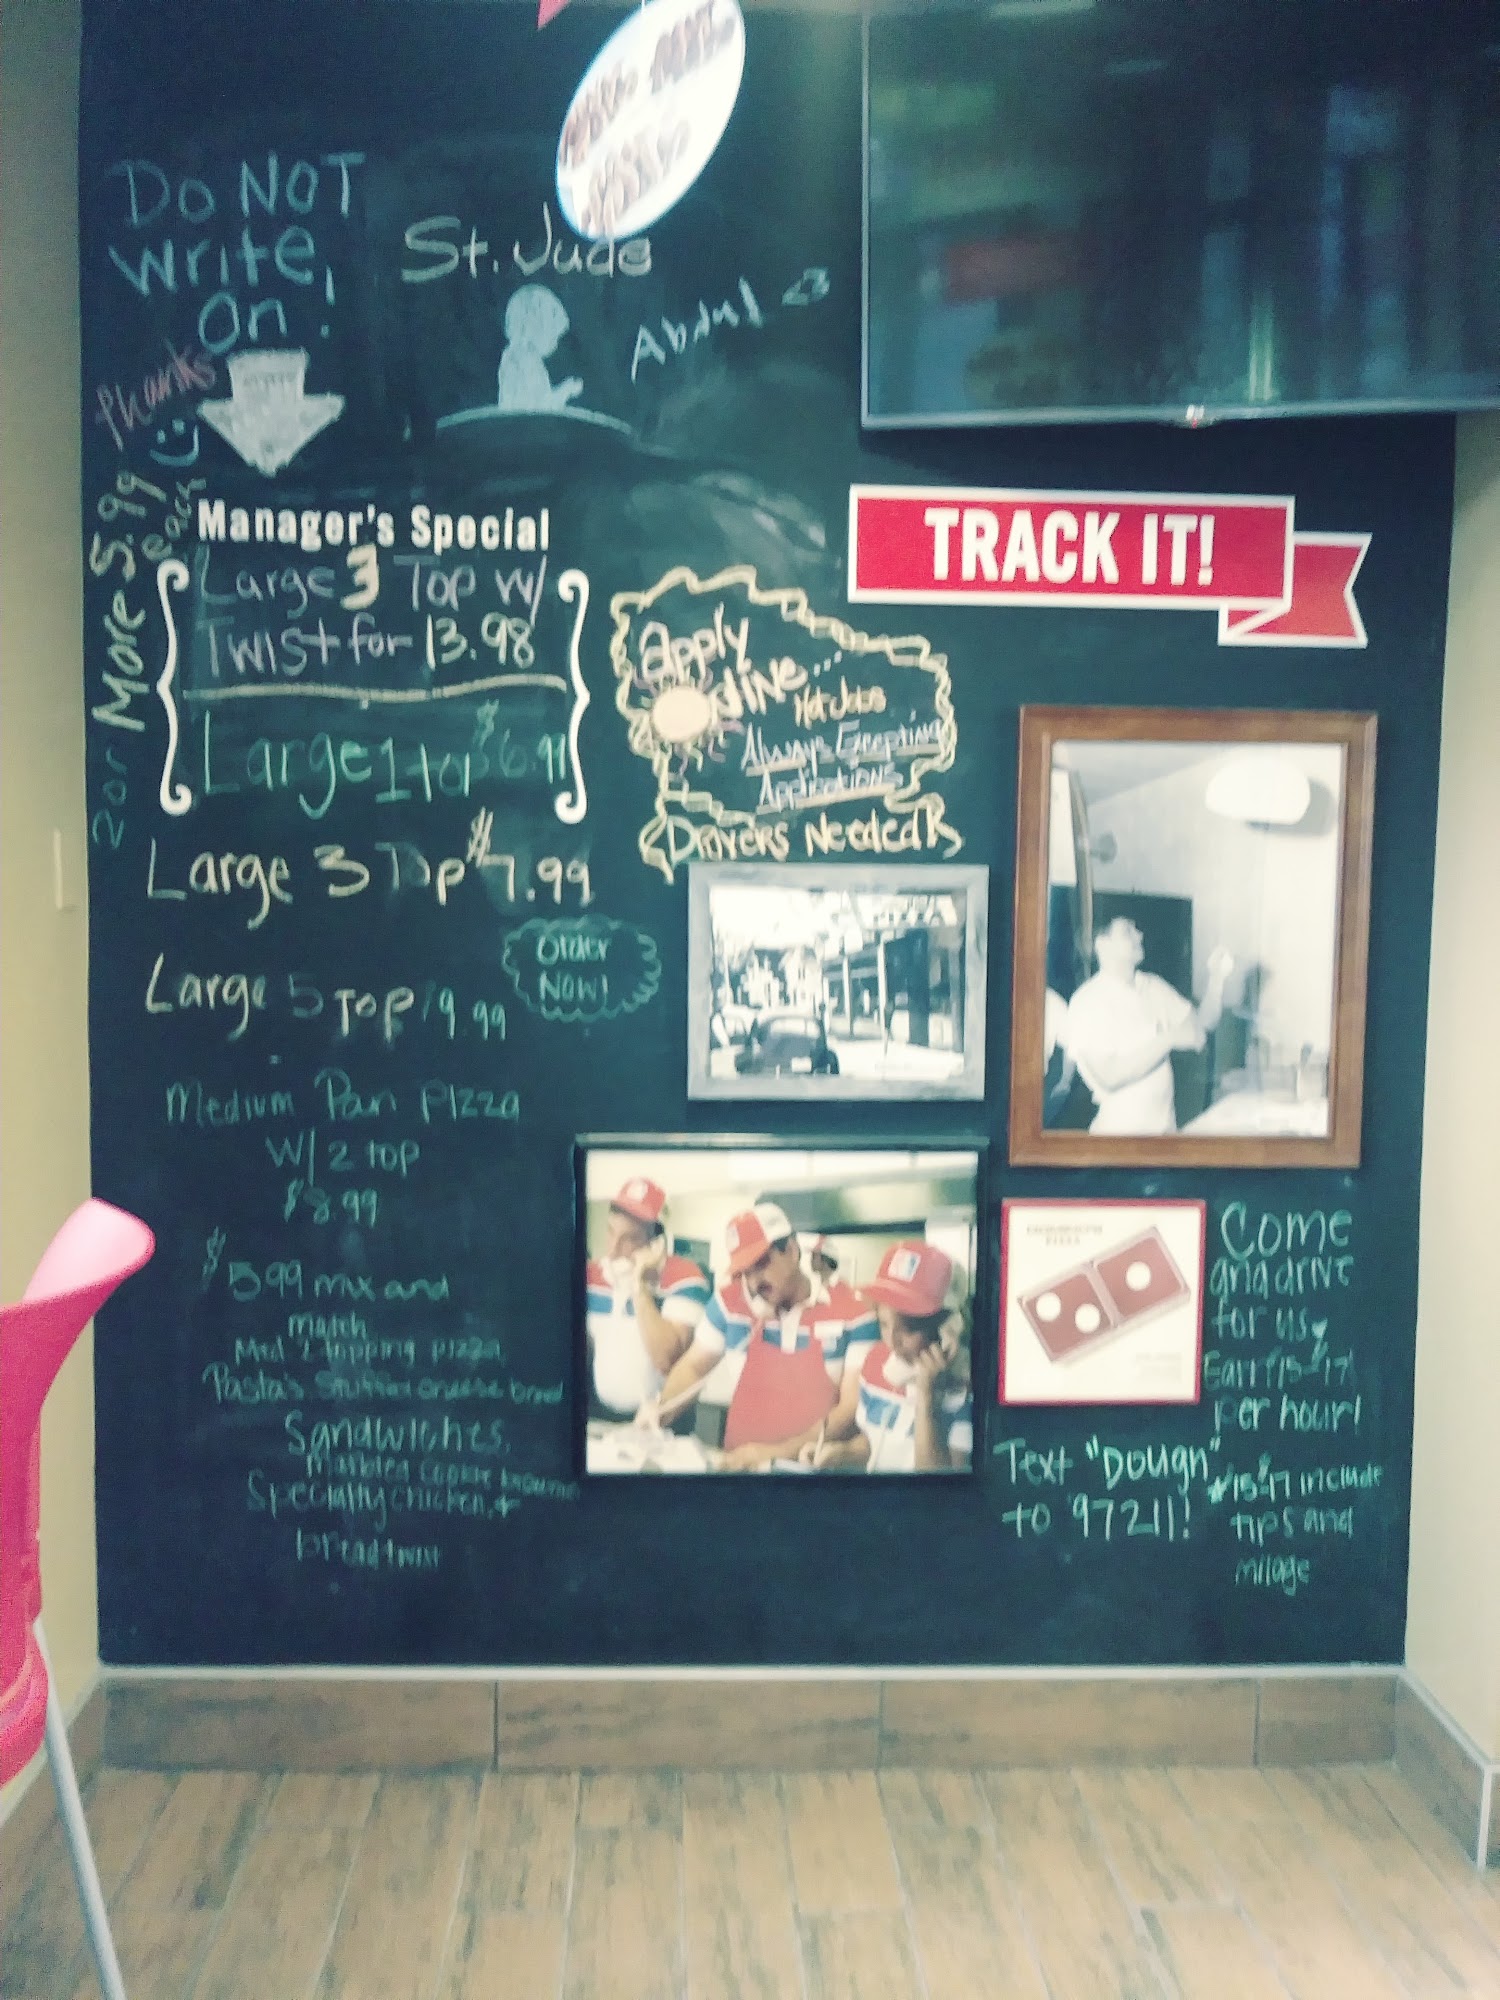 Do NOT
Write
On!
Thanks
St. Jude
Abdul
2 or More 5.99
each
Manager's Special
Large 3 Top w/
Twist for 13.98
Large 1 top $6.99
Large 3 Top $7.99
Large 5 Top 9.99
Order
Now!
Medium Pan Pizza
W/ 2 top
$8.99
$5.99 mix and
match
Med 2 topping pizza
Pasta's Stuffed cheese bread
Sandwiches,
Marbled cookie brownie
Specialty chicken, +
bread twist
TRACK IT!
Apply
Online...
Hot Jobs
Always Accepting
Applications
Drivers Needed
DOMINO'S
PIZZA
Come
and drive
for us
Earn $15-$17
per hour!
*15-$17 include
tips and
milage
Text "Dough"
to 97211!